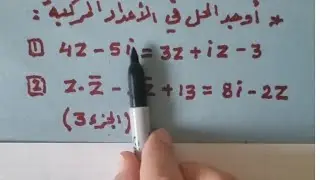 * أوجد الحل في الأعداد المركبة:
1 4z - 5i = 3z + iz - 3
2 z. z̄ - z̄ + 13 = 8i - 2z
(الجزء 3)